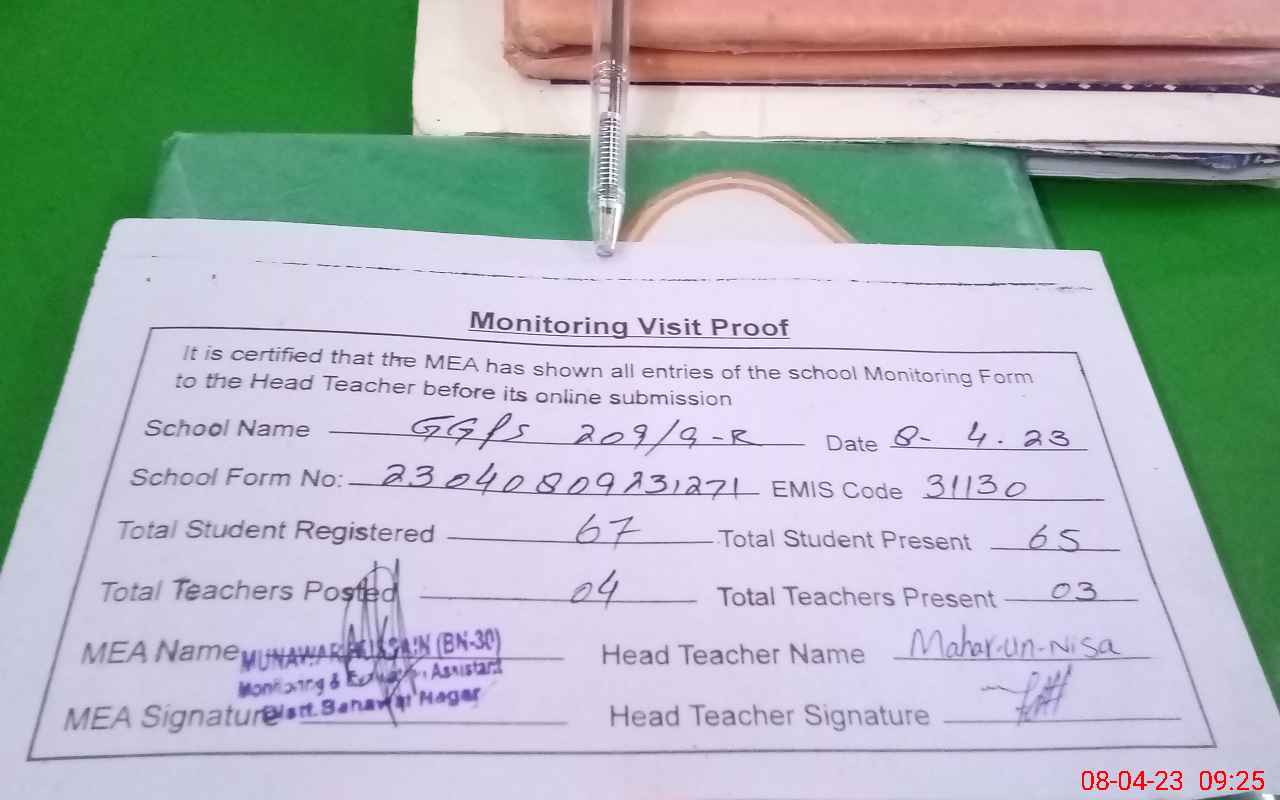 Monitoring Visit Proof
It is certified that the MEA has shown all entries of the school Monitoring Form
to the Head Teacher before its online submission
School Name GGPS 209/9-R Date 8-4.23
School Form No: 23040809231271 EMIS Code 31130
Total Student Registered 67 Total Student Present 65
Total Teachers Posted 04 Total Teachers Present 03
MEA Name MUNAWAR HUSSAIN (BN-30) Head Teacher Name Mahar-un-Nisa
Monitoring & Evaluation Assistant
MEA Signature Distt. Bahawal Nagar Head Teacher Signature
08-04-23 09:25